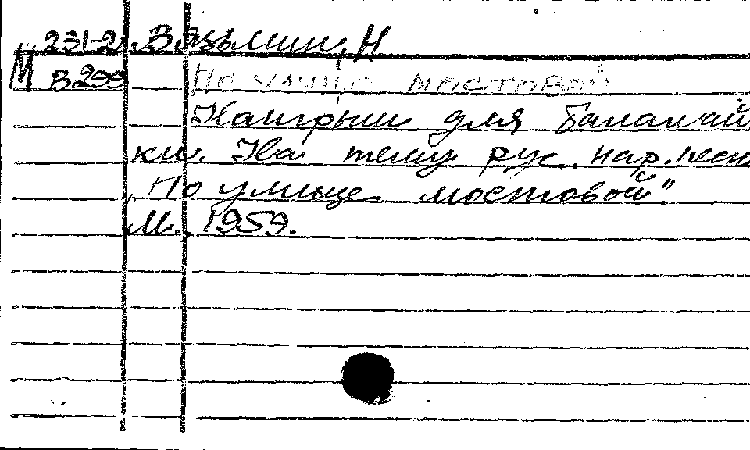 231-2. Вязьмин, Н
М В299 По улице мостовой
Наигрыш для балалай
ки. На тему рус. нар. песн
„По улице мостовой"
М. 1959.